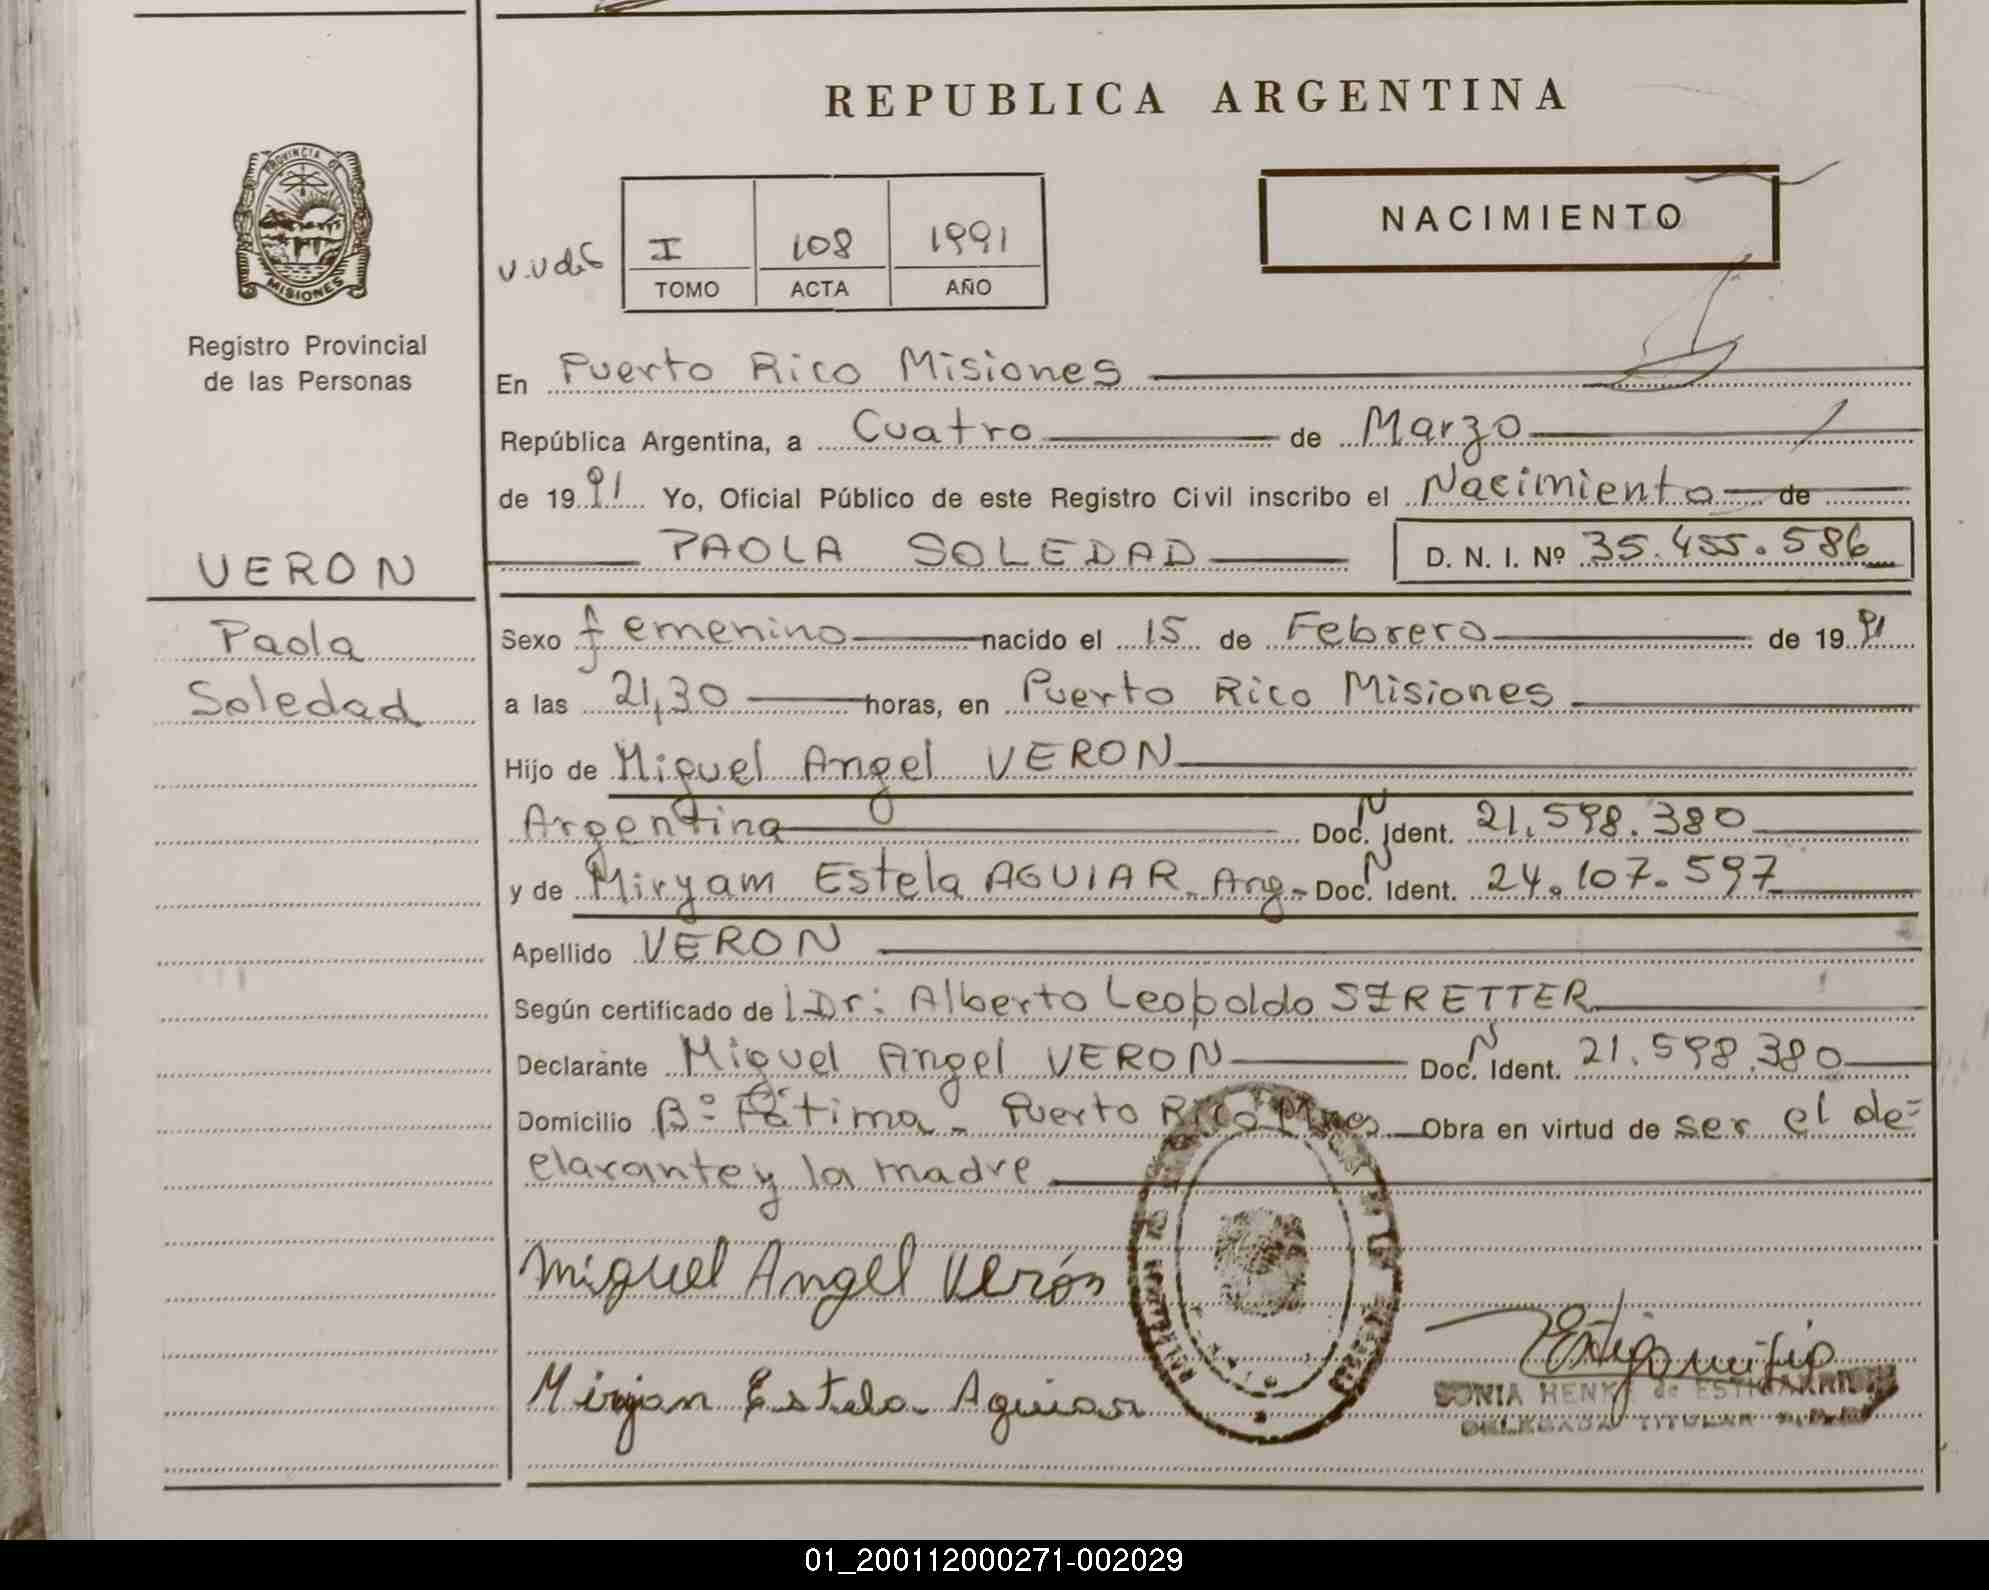 REPUBLICA ARGENTINA
PROVINCIA DE
MISIONES
Registro Provincial
de las Personas
NACIMIENTO
I 108 1991
TOMO ACTA AÑO
En Puerto Rico Misiones
República Argentina, a Cuatro de Marzo
de 1991 Yo, Oficial Público de este Registro Civil inscribo el Nacimiento de
PAOLA SOLEDAD D. N. I. Nº 35.455.586
VERON
Paola
Soledad
Sexo femenino nacido el 15 de Febrero de 1991
a las 21,30 horas, en Puerto Rico Misiones
Hijo de Miguel Angel VERON
Argentina Doc. N Ident. 21.598.380
y de Miryam Estela AGUIAR. Arg- Doc. N Ident. 24.107.597
Apellido VERON
Según certificado de l Dr: Alberto Leopoldo
Declarante Miguel Angel VERON Doc. N Ident. 21.598.380
Domicilio Bº Fátima - Puerto Rico Mnes Obra en virtud de ser el de=
clarante y la madre
Miguel Angel Verón
Mirjan Estela Aguiar
SONIA
DELEGADA TITULAR
01_200112000271-002029